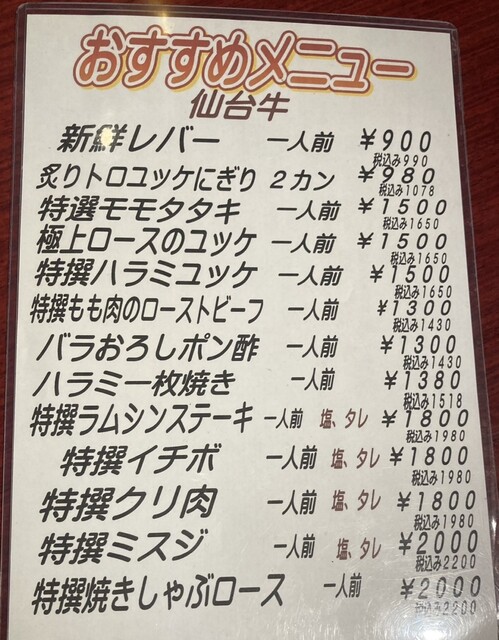 おすすめメニュー
仙台牛
新鮮レバー 一人前 ¥900
税込み990
炙りトロユッケにぎり 2カン ¥980
税込み1078
特選モモタタキ 一人前 ¥1500
税込み1650
極上ロースのユッケ 一人前 ¥1500
税込み1650
特撰ハラミユッケ 一人前 ¥1500
税込み1650
特撰もも肉のローストビーフ 一人前 ¥1300
税込み1430
バラおろしポン酢 一人前 ¥1300
税込み1430
ハラミ一枚焼き 一人前 ¥1380
税込み1518
特撰ラムシンステーキ 一人前 塩、タレ ¥1800
税込み1980
特撰イチボ 一人前 塩、タレ ¥1800
税込み1980
特撰クリ肉 一人前 塩、タレ ¥1800
税込み1980
特撰ミスジ 一人前 塩、タレ ¥2000
税込み2200
特撰焼きしゃぶロース 一人前 ¥2000
税込み2200